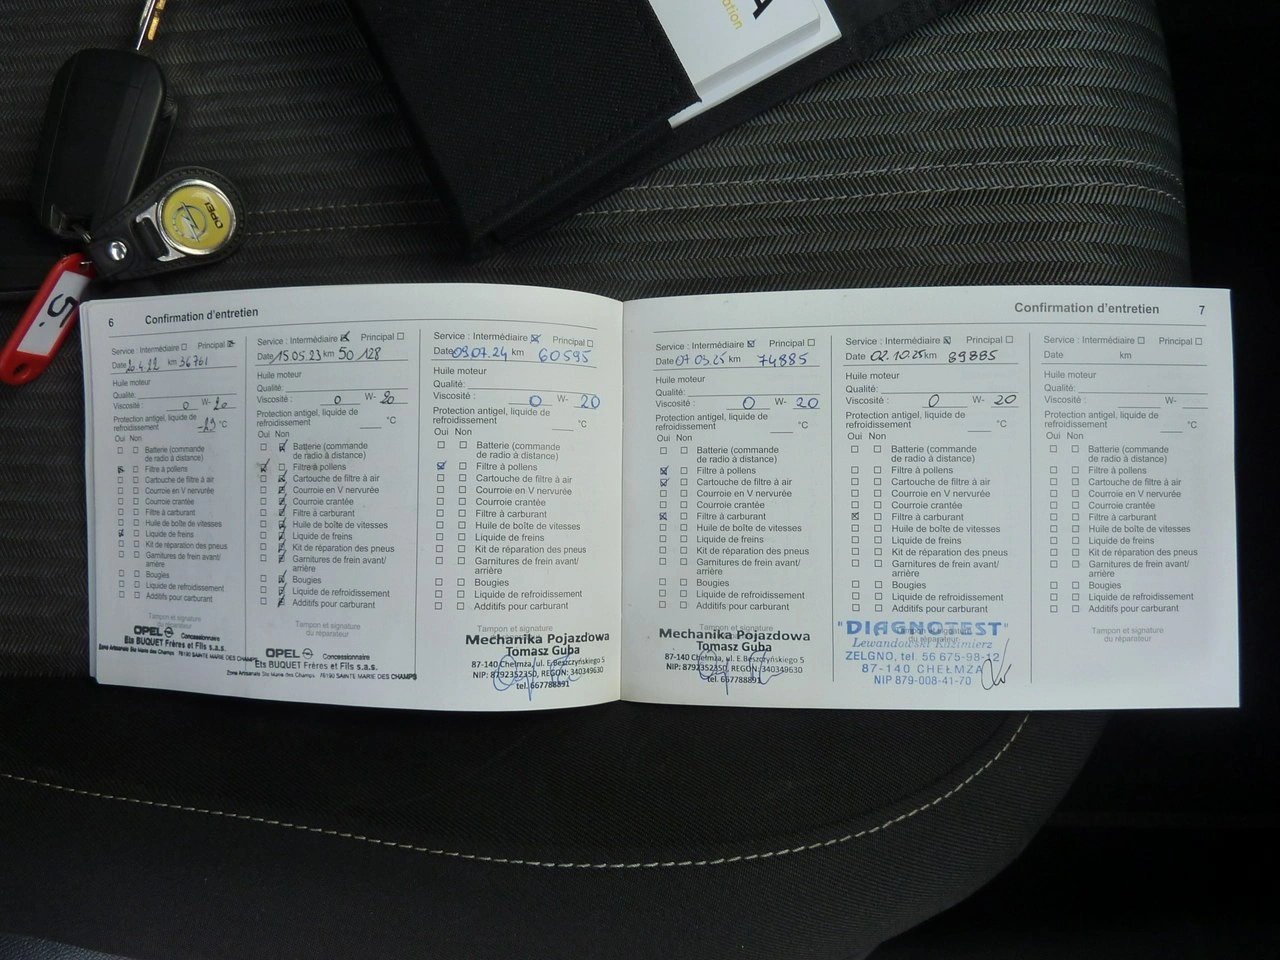 OPEL
5.
A
ation
6 Confirmation d'entretien
Service : Intermédiaire Principal
Date 20.4.22 km 36761
Huile moteur
Qualité:
Viscosité : 0 W- 20
Protection antigel, liquide de
refroidissement -29 °C
Oui Non
Batterie (commande
de radio à distance)
Filtre à pollens
Cartouche de filtre à air
Courroie en V nervurée
Courroie crantée
Filtre à carburant
Huile de boîte de vitesses
Liquide de freins
Kit de réparation des pneus
Garnitures de frein avant/
arrière
Bougies
Liquide de refroidissement
Additifs pour carburant
Tampon et signature
OPEL Concessionnaire
Ets BUQUET Frères et Fils s.a.s.
Zone Artisanale Ste Marie des Champs 76190 SAINTE MARIE DES CHAMPS
Service : Intermédiaire Principal
Date 15.05.23 km 50 128
Huile moteur
Qualité:
Viscosité : 0 W- 20
Protection antigel, liquide de
refroidissement °C
Oui Non
Batterie (commande
de radio à distance)
Filtre à pollens
Cartouche de filtre à air
Courroie en V nervurée
Courroie crantée
Filtre à carburant
Huile de boîte de vitesses
Liquide de freins
Kit de réparation des pneus
Garnitures de frein avant/
arrière
Bougies
Liquide de refroidissement
Additifs pour carburant
Tampon et signature
du réparateur
OPEL Concessionnaire
Ets BUQUET Frères et Fils s.a.s.
Zone Artisanale Ste Marie des Champs 76190 SAINTE MARIE DES CHAMPS
Service : Intermédiaire Principal
Date 09.07.24 km 60595
Huile moteur
Qualité:
Viscosité : 0 W- 20
Protection antigel, liquide de
refroidissement °C
Oui Non
Batterie (commande
de radio à distance)
Filtre à pollens
Cartouche de filtre à air
Courroie en V nervurée
Courroie crantée
Filtre à carburant
Huile de boîte de vitesses
Liquide de freins
Kit de réparation des pneus
Garnitures de frein avant/
arrière
Bougies
Liquide de refroidissement
Additifs pour carburant
Tampon et signature
Mechanika Pojazdowa
Tomasz Guba
87-140 Chełmża, ul. E.Beszczyńskiego 5
NIP: 8792352350, REGON: 340349630
tel. 667788891
Confirmation d'entretien 7
Service : Intermédiaire Principal
Date 07.03.25 km 74885
Huile moteur
Qualité:
Viscosité : 0 W- 20
Protection antigel, liquide de
refroidissement °C
Oui Non
Batterie (commande
de radio à distance)
Filtre à pollens
Cartouche de filtre à air
Courroie en V nervurée
Courroie crantée
Filtre à carburant
Huile de boîte de vitesses
Liquide de freins
Kit de réparation des pneus
Garnitures de frein avant/
arrière
Bougies
Liquide de refroidissement
Additifs pour carburant
Tampon et signature
Mechanika Pojazdowa
Tomasz Guba
87-140 Chełmża, ul. E.Beszczyńskiego 5
NIP: 8792352350, REGON: 340349630
tel. 667788891
Service : Intermédiaire Principal
Date 02.10.25 km 89885
Huile moteur
Qualité:
Viscosité : 0 W- 20
Protection antigel, liquide de
refroidissement °C
Oui Non
Batterie (commande
de radio à distance)
Filtre à pollens
Cartouche de filtre à air
Courroie en V nervurée
Courroie crantée
Filtre à carburant
Huile de boîte de vitesses
Liquide de freins
Kit de réparation des pneus
Garnitures de frein avant/
arrière
Bougies
Liquide de refroidissement
Additifs pour carburant
Tampon et signature
du réparateur
"DIAGNOTEST"
Lewandowski Kazimierz
ZELGNO, tel. 56 675-98-12
87-140 CHEŁMŻA
NIP 879-008-41-70
Service : Intermédiaire Principal
Date km
Huile moteur
Qualité:
Viscosité : W-
Protection antigel, liquide de
refroidissement °C
Oui Non
Batterie (commande
de radio à distance)
Filtre à pollens
Cartouche de filtre à air
Courroie en V nervurée
Courroie crantée
Filtre à carburant
Huile de boîte de vitesses
Liquide de freins
Kit de réparation des pneus
Garnitures de frein avant/
arrière
Bougies
Liquide de refroidissement
Additifs pour carburant
Tampon et signature
du réparateur